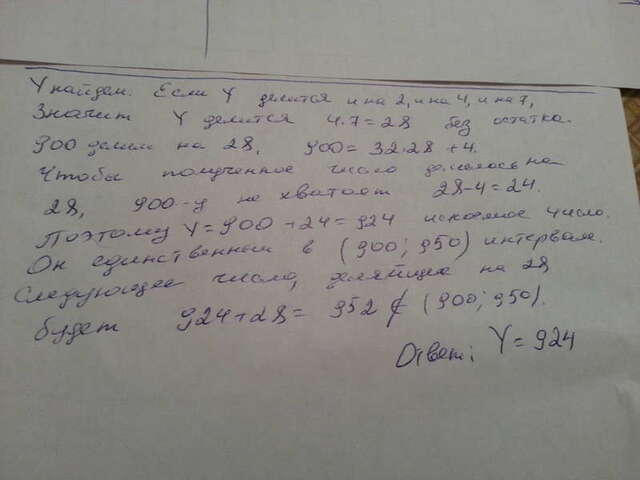 Y найдем. Если Y делится и на 2, и на 4, и на 7,
Значит Y делится 4·7=28 без остатка.
900 делим на 28, 900=32·28+4.
Чтобы полученное число делилось на
28, 900-у не хватает 28-4=24.
Поэтому Y=900+24=924 искомое число.
Он единственный в (900; 950) интервале.
Следующее число, делящее на 28
будет 924+28=952 ∉ (900; 950).
Ответ: Y=924